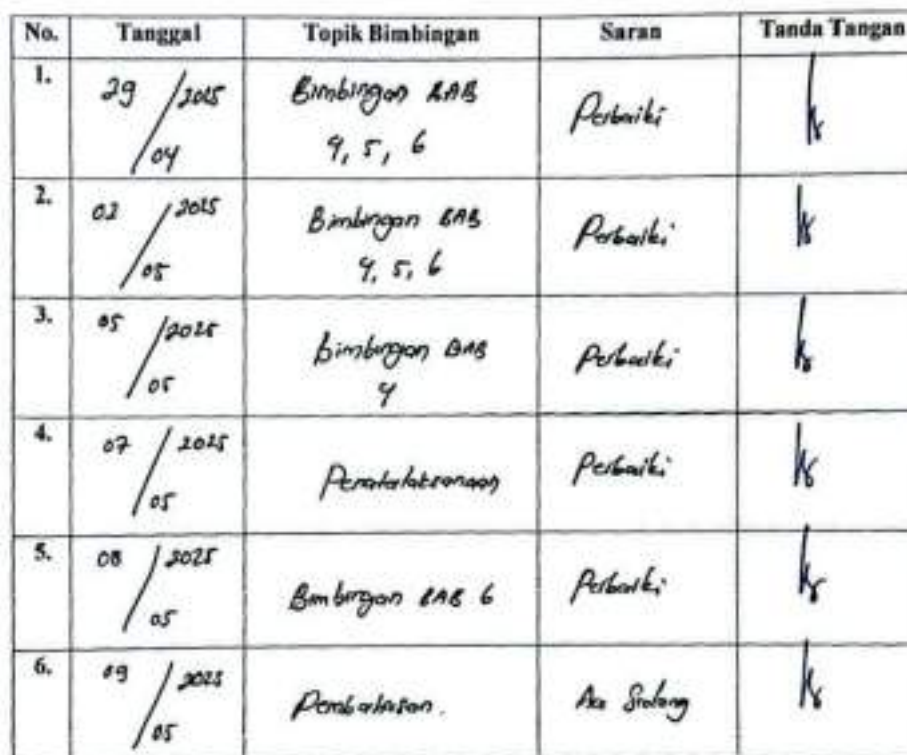 No. Tanggal Topik Bimbingan Saran Tanda Tangan
1. 29/04 2025 Bimbingan BAB 4, 5, 6 Perbaiki
2. 02/05 2025 Bimbingan BAB 4, 5, 6 Perbaiki
3. 05/05 2025 Bimbingan BAB 4 Perbaiki
4. 07/05 2025 Penatalaksanaan Perbaiki
5. 08/05 2025 Bimbingan BAB 6 Perbaiki
6. 09/05 2025 Pembahasan. Acc Sidang